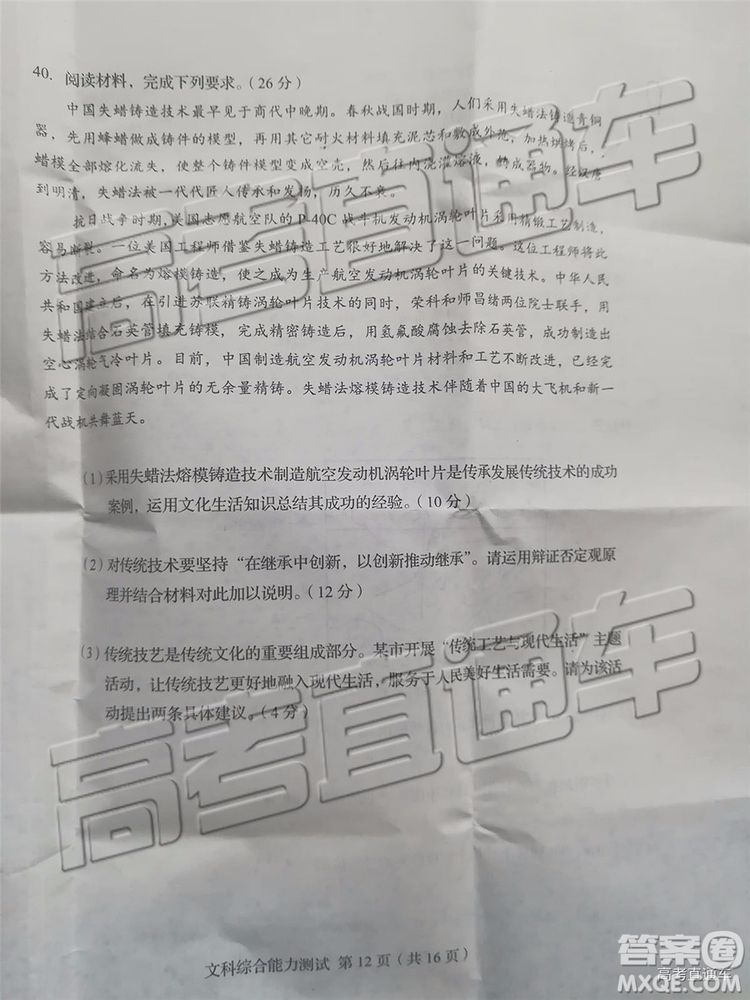 40. 阅读材料，完成下列要求。（26分）
中国失蜡铸造技术最早见于商代中晚期。春秋战国时期，人们采用失蜡法铸造青铜
器，先用蜂蜡做成铸件的模型，再用其它耐火材料填充泥芯和敷成外范，加热烘烤后，
蜡模全部熔化流失，使整个铸件模型变成空壳，然后往内浇灌熔液，铸成器物。经汉唐
到明清，失蜡法被一代代匠人传承和发扬，历久不衰。
抗日战争时期，美国志愿航空队的P-40C战斗机发动机涡轮叶片采用精锻工艺制造，
容易断裂。一位美国工程师借鉴失蜡铸造工艺很好地解决了这一问题。这位工程师将此
方法改进，命名为熔模铸造，使之成为生产航空发动机涡轮叶片的关键技术。中华人民
共和国建立后，在引进苏联精铸涡轮叶片技术的同时，荣科和师昌绪两位院士联手，用
失蜡法结合石英管填充铸模，完成精密铸造后，用氢氟酸腐蚀去除石英管，成功制造出
空心涡轮气冷叶片。目前，中国制造航空发动机涡轮叶片材料和工艺不断改进，已经完
成了定向凝固涡轮叶片的无余量精铸。失蜡法熔模铸造技术伴随着中国的大飞机和新一
代战机共舞蓝天。
（1）采用失蜡法熔模铸造技术制造航空发动机涡轮叶片是传承发展传统技术的成功
案例，运用文化生活知识总结其成功的经验。（10分）
（2）对传统技术要坚持“在继承中创新，以创新推动继承”。请运用辩证否定观原
理并结合材料对此加以说明。（12分）
（3）传统技艺是传统文化的重要组成部分。某市开展“传统工艺与现代生活”主题
活动，让传统技艺更好地融入现代生活，服务于人民美好生活需要。请为该活
动提出两条具体建议。（4分）
文科综合能力测试 第12页（共16页）
高考直通车
高考直通车
答案卷
MXQE.COM
高考直通车